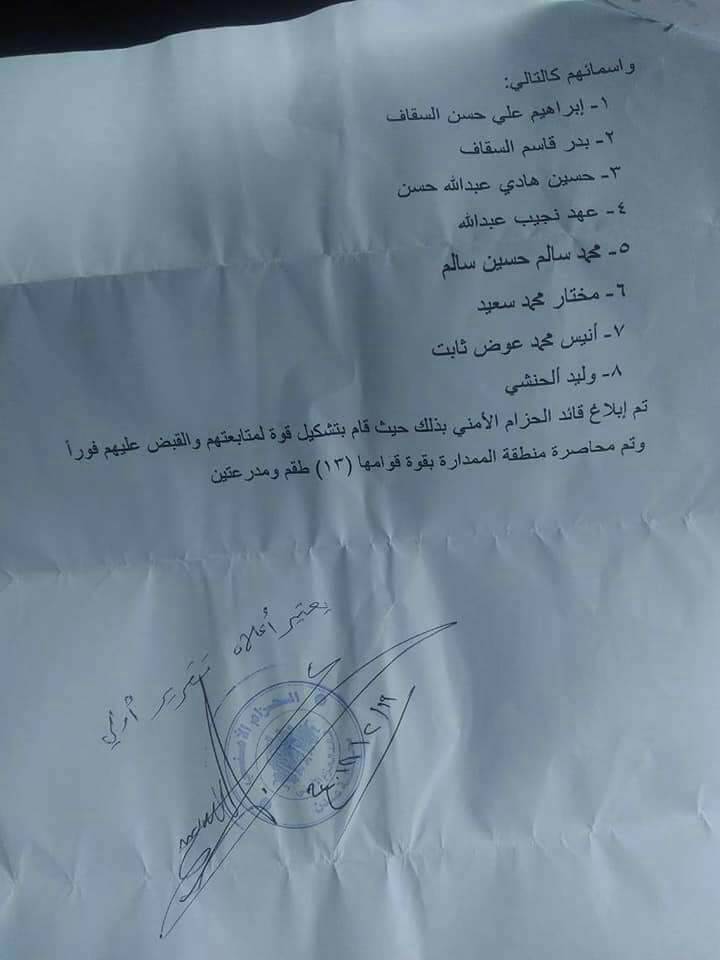 واسمائهم كالتالي:
١- إبراهيم علي حسن السقاف
٢- بدر قاسم السقاف
٣- حسين هادي عبدالله حسن
٤- عهد نجيب عبدالله
٥- محمد سالم حسين سالم
٦- مختار محمد سعيد
٧- أنيس محمد عوض ثابت
٨- وليد الحنشي
تم إبلاغ قائد الحزام الأمني بذلك حيث قام بتشكيل قوة لمتابعتهم والقبض عليهم فوراً
وتم محاصرة منطقة الممدارة بقوة قوامها (١٣) طقم ومدرعتين
يعتبر أعلاه تقرير أولي
الحزام الأمني